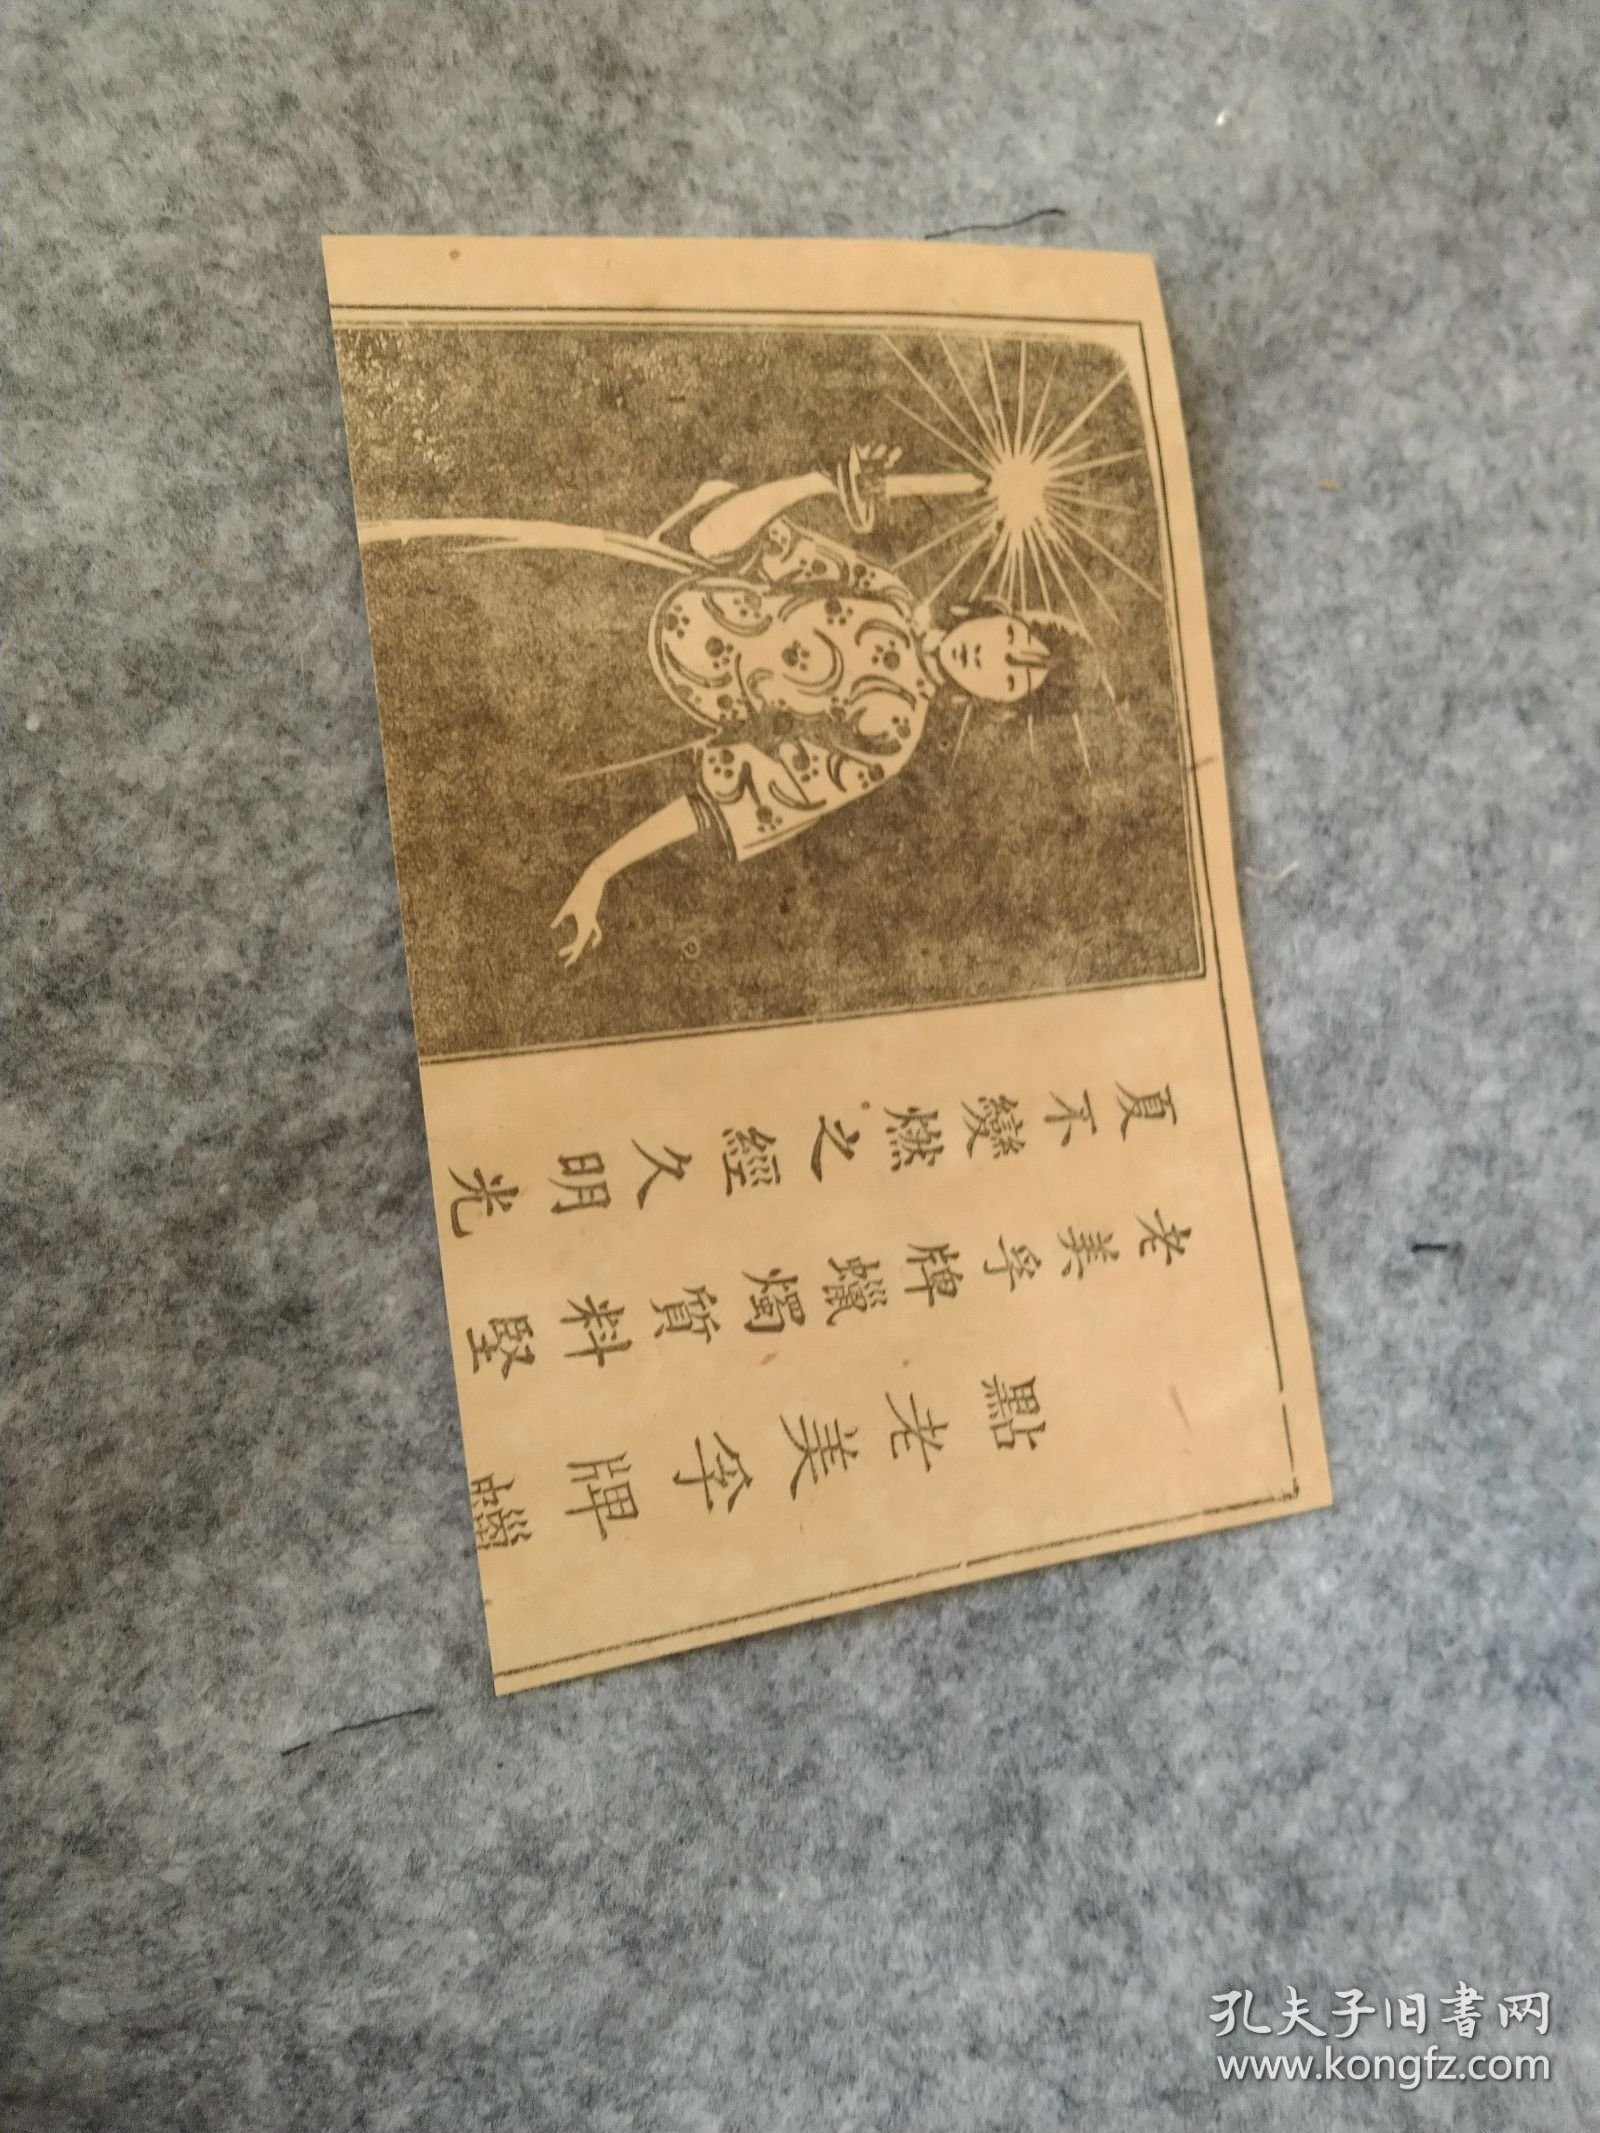 點老美孚牌蠟
老美孚牌蠟燭質料堅
夏不變燃之經久明光
孔夫子旧书网
www.kongfz.com